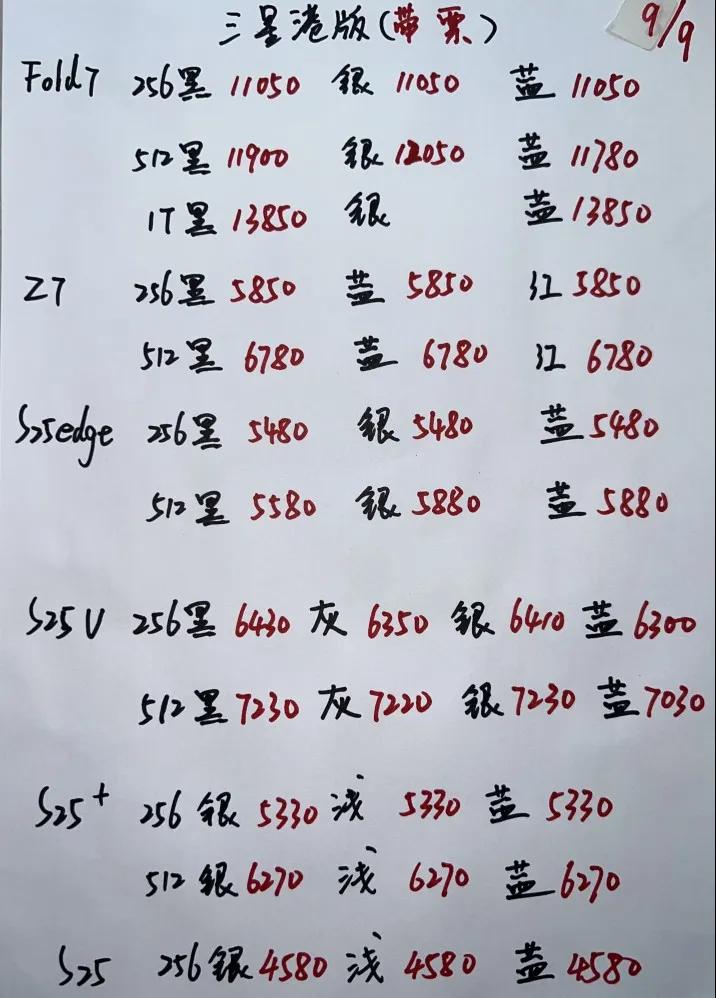 三星港版(带票) 9/9
Fold7 256黑 11050 银 11050 蓝 11050
512黑 11900 银 12050 蓝 11780
1T黑 13850 银 蓝 13850
Z7 256黑 5850 蓝 5850 红 5850
512黑 6780 蓝 6780 红 6780
S25edge 256黑 5480 银 5480 蓝 5480
512黑 5580 银 5880 蓝 5880
S25U 256黑 6430 灰 6350 银 6410 蓝 6300
512黑 7230 灰 7220 银 7230 蓝 7030
S25+ 256 银 5330 浅 5330 蓝 5330
512 银 6270 浅 6270 蓝 6270
S25 256 银 4580 浅 4580 蓝 4580